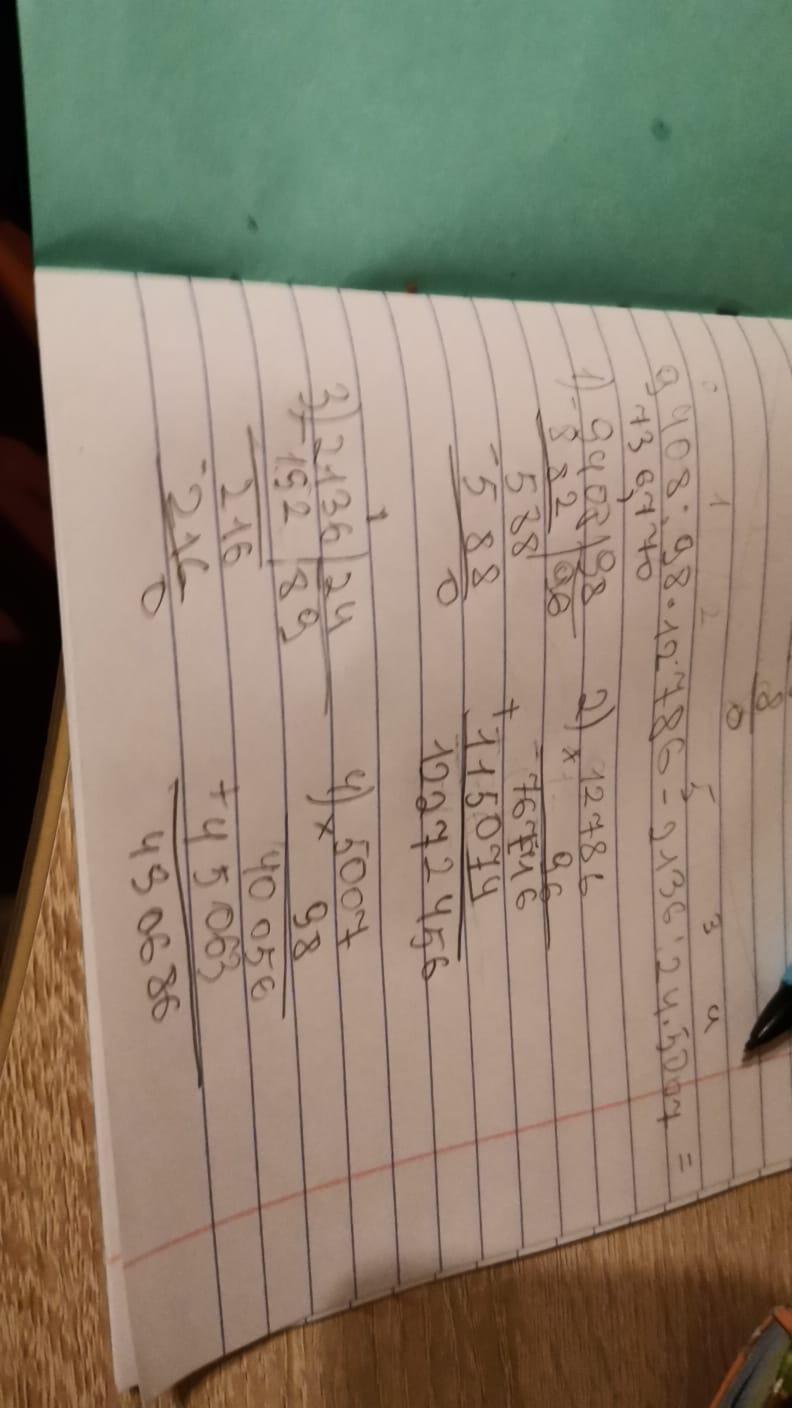 8
0
1 2 5 3 4
9408:98·12786-2136:24·5007=
736,770
1) 9408|98
-882 |96
588
-588
0
2) 12786
× 96
76716
+115074
1227456
3) 2136|24
-192 |89
216
-216
0
4) 5007
× 98
40056
+45063
490686